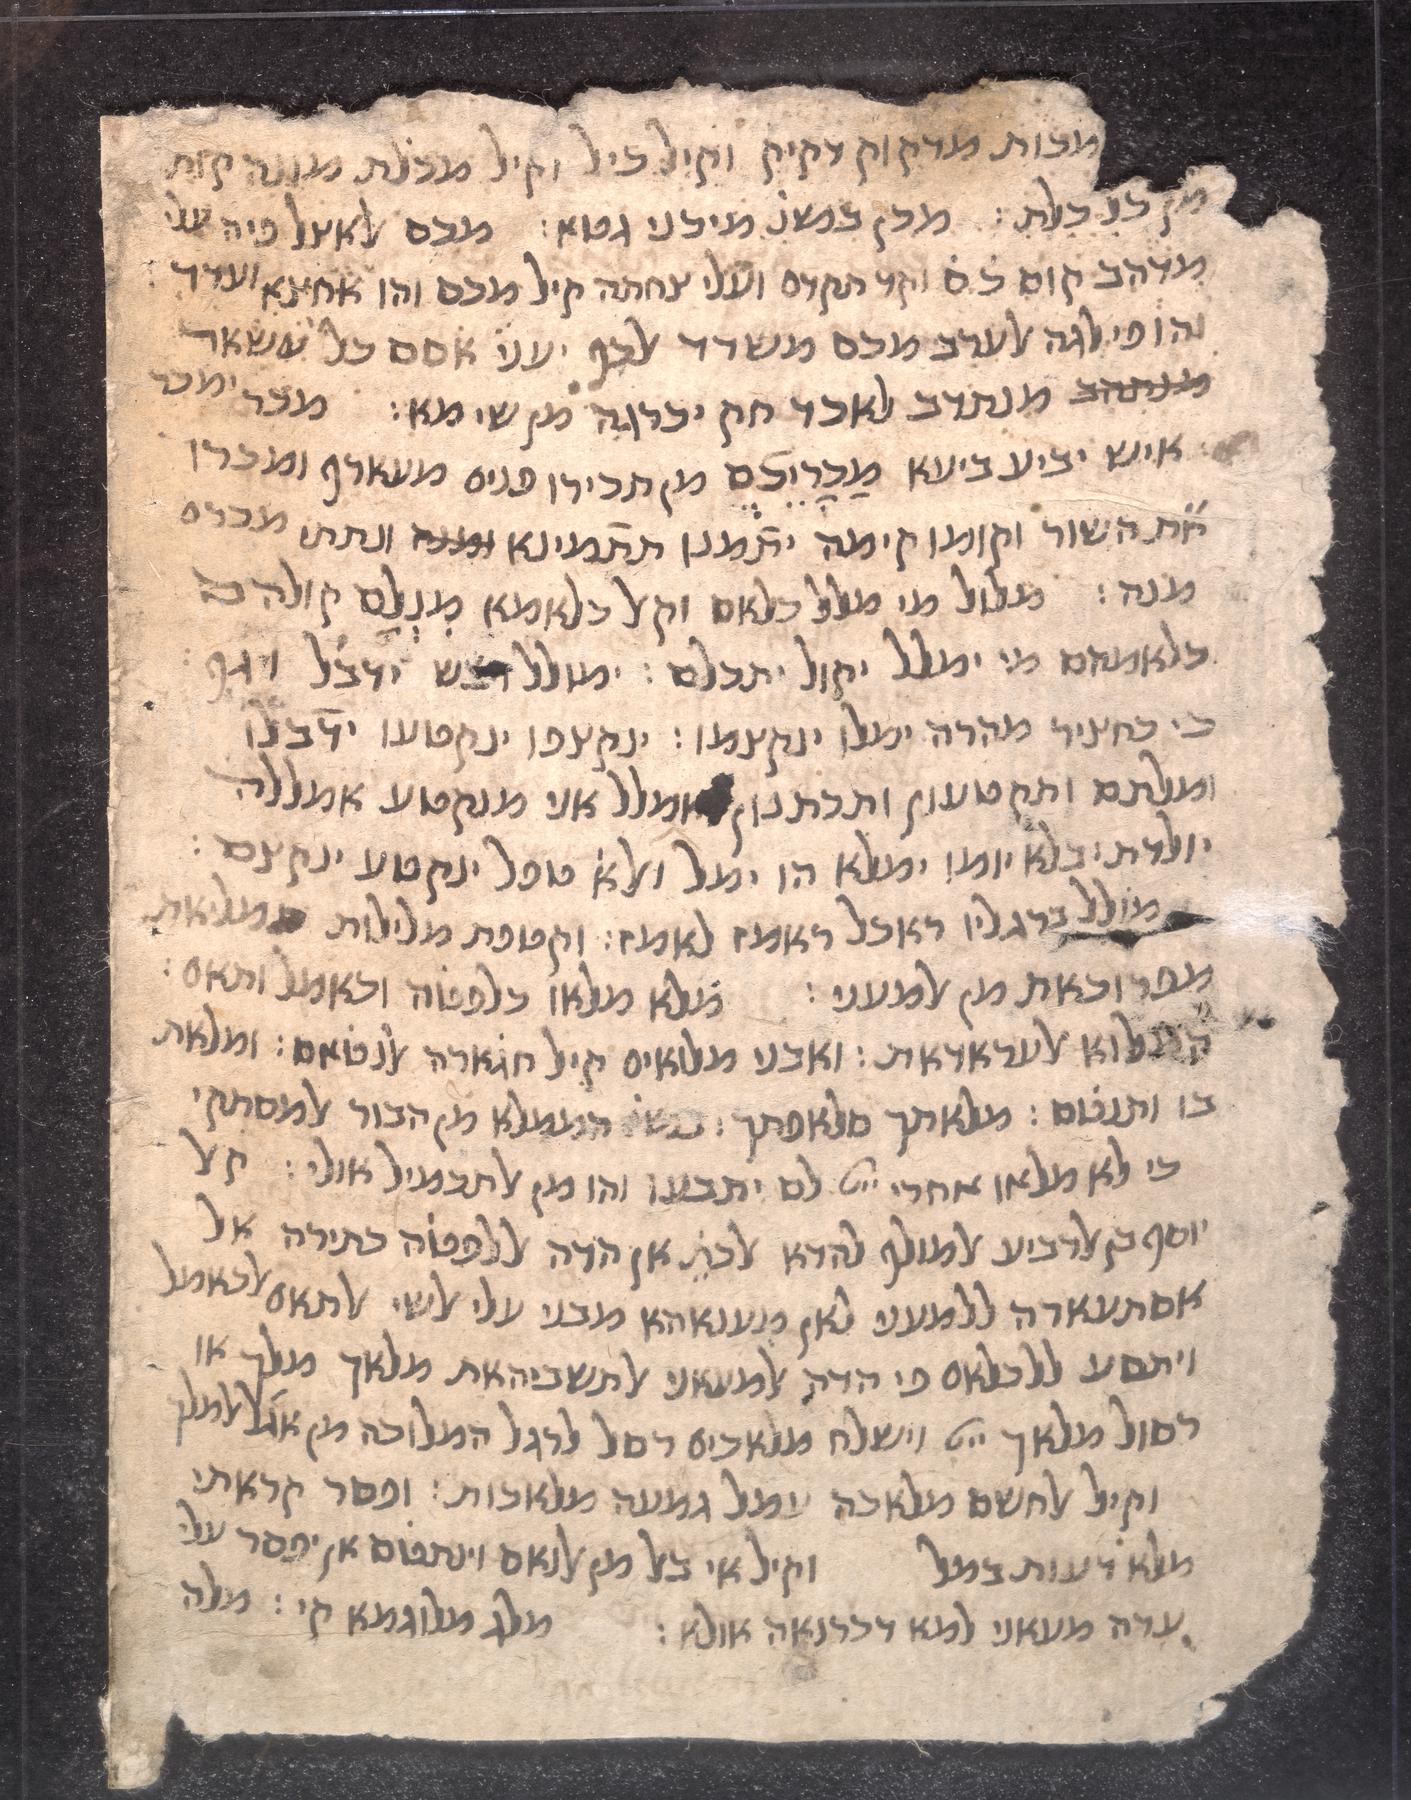 מכות מדקוק דקיק וקיל כיל וקיל מכלת מוונה קות
מן בני כלת : מכן במשנ מיכני גטא : מכס לאצל פיה עלי
מדהב קום כ ס וקד תקדם ועלי צחתה קיל מכס והו אחצא ועדד :
והו פי לגה לערב מכס משדד לכף יעני אסם כל עשאר
מנתדב לאכד חק יכרגה מן שי מא : מכר ימכר
איש יביע ביעא מַכָּרֵיכֶם מן תכירו פניס מעארף ומכרו
את השור וקומו קימה יתמנו תתמינא ונתתי מכרם
מנה : מלול מי מלל כלאם וקל כלאמא מִנְלָם קולה כה
כלאמהם מי ימלל יקול יתכלם : ימולל ויבש ידבל וגף :
כי כחציר מהרה ימלו ינקצמו : ינקצפו ינקטעו ידבלו
ומלתם ותקטעון ותכתנון אמלל אני מנקטע אמללה
יולדת יבלא יומו ימלא הו ימל ולא טפל ינקטע ינקצם :
מולל ברגליו ראכל ראמז לאמז : וקטופת מלילות מליאת
מפרוכאת מן למעני : מלא מלאו כלפטה וכאמל ותאם :
לעדאדאת : ואבני מלואים קיל חגארה לנטאם : ומלאת
בו ותנטם : מלאתך סלאפתך : הממלא מן הבור למסתקי
כי לא מלאו אחרי ייי לם יתבעו והו מן לתכמיל אולי : קל
יוסף בן לרביע למולף להדא לכת אן הדה ללפטה כתירה אל
אסתעארה ללמעני לאן מענאהא מבני עלי לשי לתאם לכאמל
ויתסע ללכלאם פי הדה למעאני לתשביהאת מלאך מלך או
רסול מלאך ייי וישלח מלאכים רסל לרגל המלוכה מן אגל למלך
וקיל לחשם מלאכה עמל גמעה מלאכות : ופסר קראתי
מלא דעות במל וקיל אי כל מן לנאס וינתטם אן יפסר עלי
עדה מעאני למא דכרנאה אולא : מלג מלוגמא קי : מלה